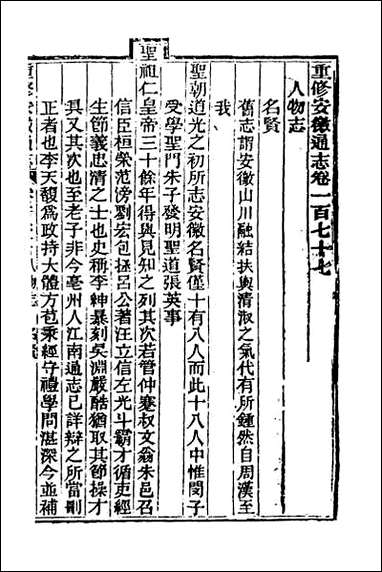 重修安徽通志卷一百七十七
人物志
名賢
舊志謂安徽山川融結扶輿清淑之氣代有所鍾然自周漢至
我
聖朝道光之初所志安徽名賢僅十有八人而此十八人中惟閔子
受學聖門朱子發明聖道張英事
聖祖仁皇帝三十餘年得與見知之列其次若管仲蹇叔文翁朱邑召
信臣桓榮范滂劉宏包拯呂公著汪立信左光斗霸才循吏經
生節義忠清之士也史稱李紳暴刻吳淵嚴酷猶取其節操才
具又其次也至老子非今亳州人江南通志已詳辯之所當刪
正者也李天馥爲政持大體方苞秉經守禮學問湛深今並補
重修安徽通志
人物志